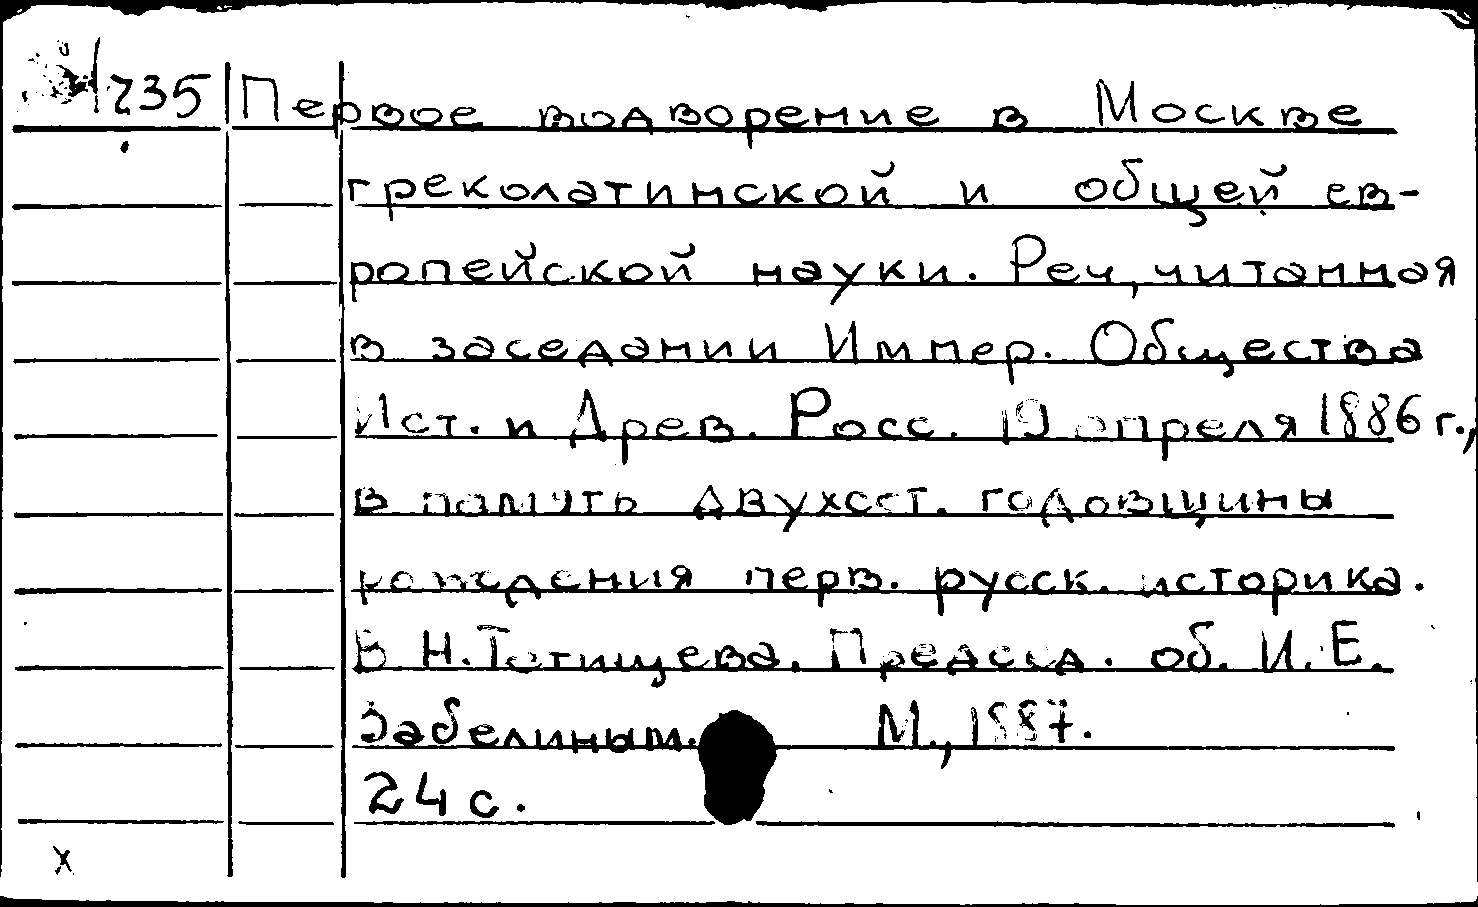 235 Первое водворение в Москве
греколатинской и общей ев-
ропейской науки. Реч, читанная
в заседании Импер. Общества
Ист. и Древ. Росс. 19 апреля 1886 г.,
в память двухсот. годовщины
рождения перв. русск. историка.
В Н. Татищева. Председ. об. И. Е.
Забелиным. М., 1887.
24 с.
х